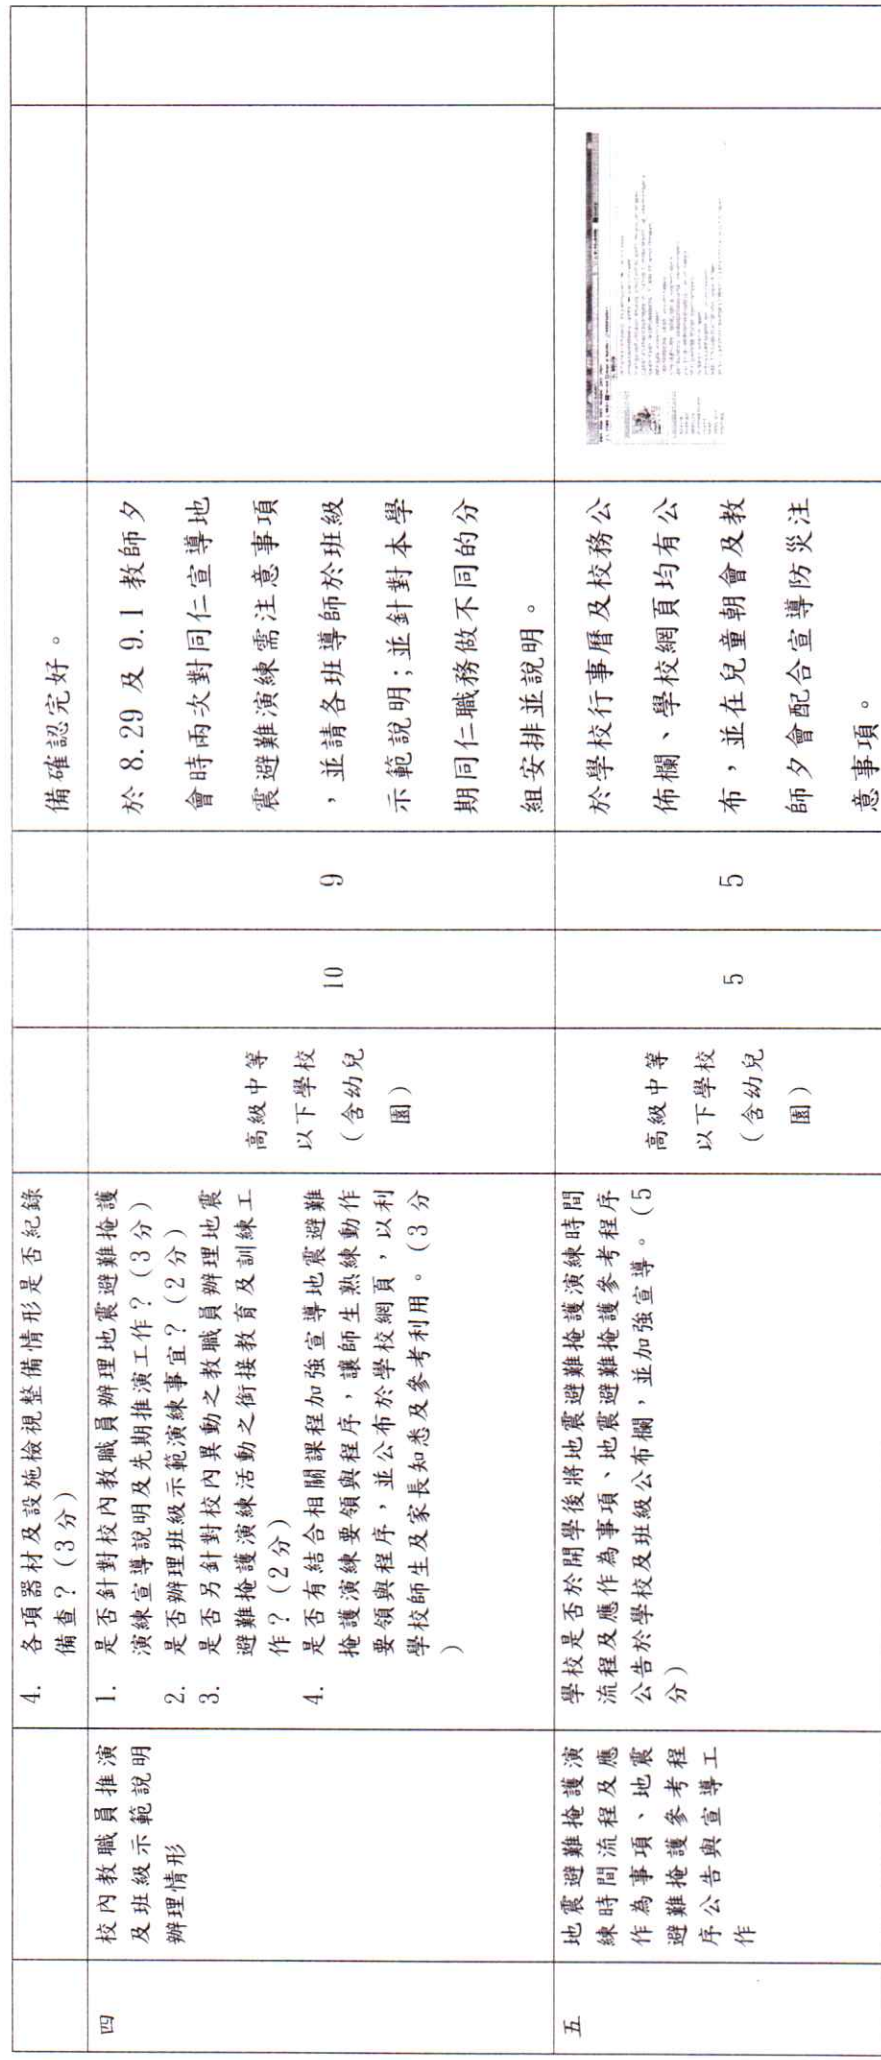 4. 各項器材及設施檢視整備情形是否紀錄
備查？(3分)
備確認完好。
四
校內教職員推演
及班級示範說明
辦理情形
1. 是否針對校內教職員辦理地震避難掩護
演練宣導說明及先期推演工作？(3分)
2. 是否辦理班級示範演練事宜？(2分)
3. 是否另針對校內異動之教職員辦理地震
避難掩護演練活動之銜接教育及訓練工
作？(2分)
4. 是否有結合相關課程加強宣導地震避難
掩護演練要領與程序，讓師生熟練動作
要領與程序，並公布於學校網頁，以利
學校師生及家長知悉及參考利用。(3分
)
高級中等
以下學校
(含幼兒
園)
10
9
於 8.29 及 9.1 教師夕
會時兩次對同仁宣導地
震避難演練需注意事項
，並請各班導師於班級
示範說明;並針對本學
期同仁職務做不同的分
組安排並說明。
五
地震避難掩護演
練時間流程及應
作為事項、地震
避難掩護參考程
序公告與宣導工
作
學校是否於開學後將地震避難掩護演練時間
流程及應作為事項、地震避難掩護參考程序
公告於學校及班級公布欄，並加強宣導。(5
分)
高級中等
以下學校
(含幼兒
園)
5
5
於學校行事曆及校務公
佈欄、學校網頁均有公
布，並在兒童朝會及教
師夕會配合宣導防災注
意事項。